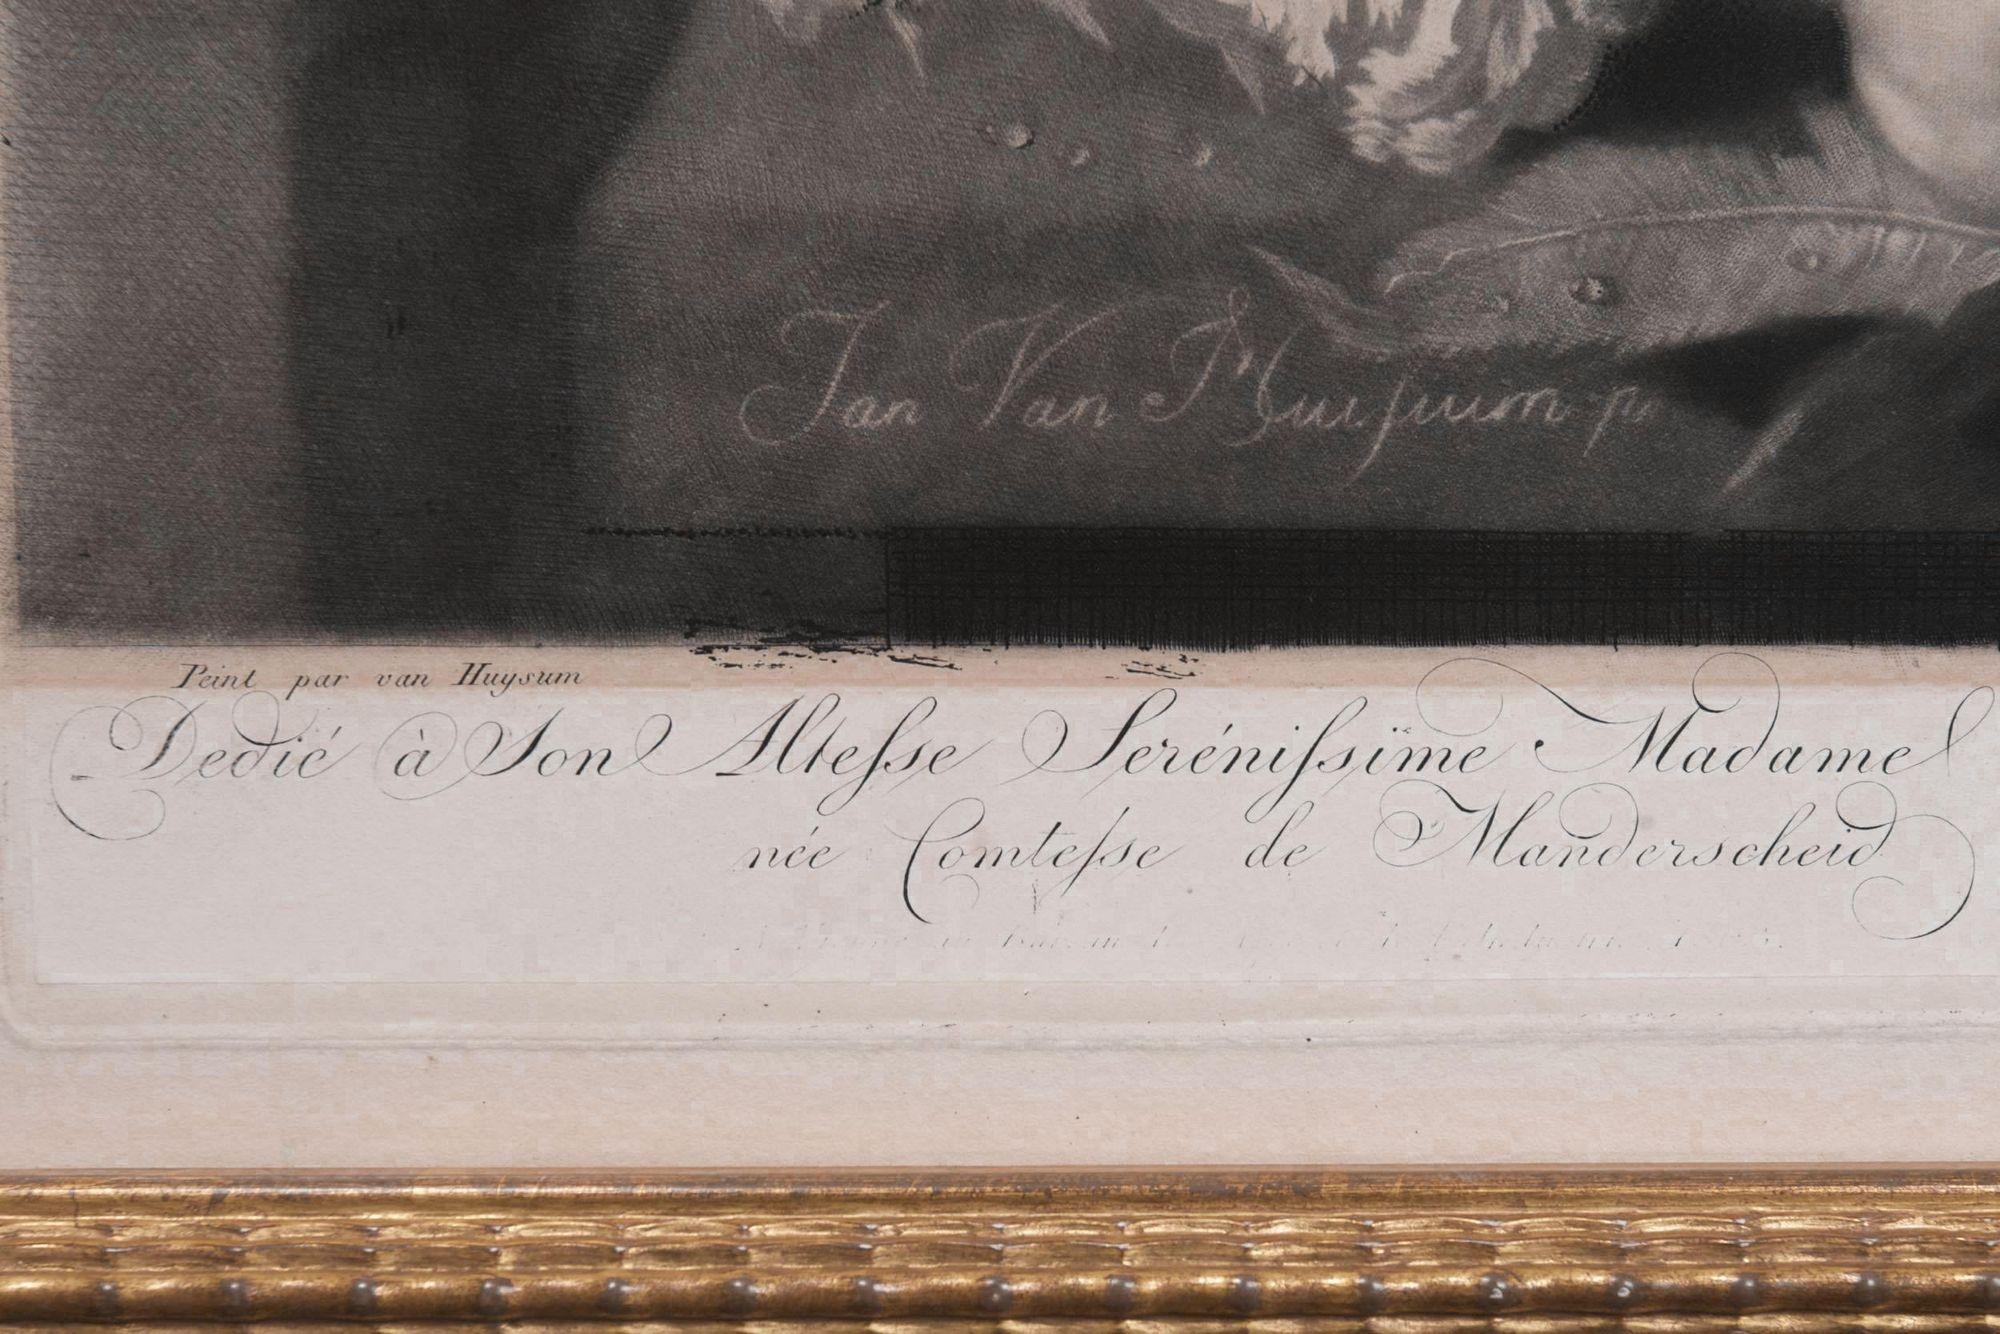 Jan Van Huijsum
Peint par van Huysum
Dedié à Son Alteſse Séréniſsïme Madame
née Comteſse de Manderscheid